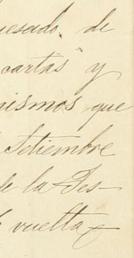 uesado, de
cartas y
mismos que
Setiembre
de la Des-
vuelta